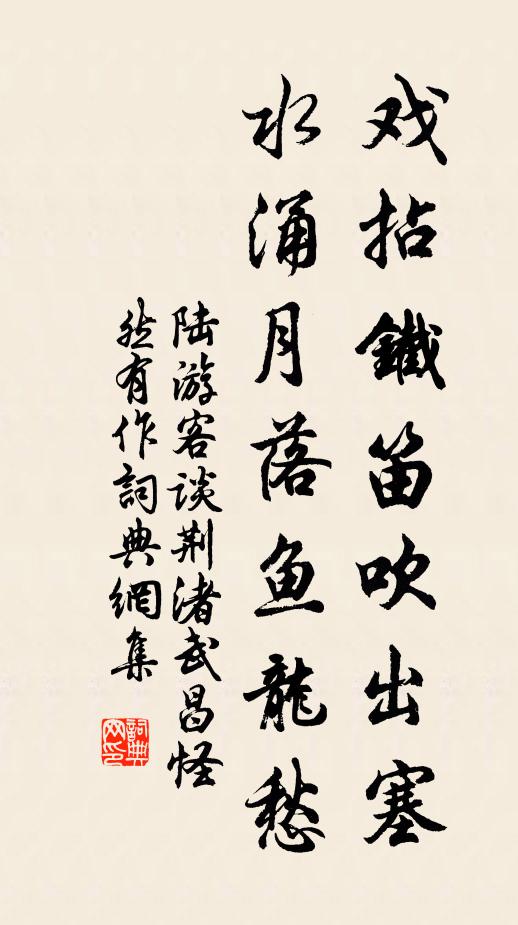 戏拈鐵笛吹出塞
水涌月落鱼龍愁
陆游客谈荆渚武昌怪
然有作詞典網集
詞典网印